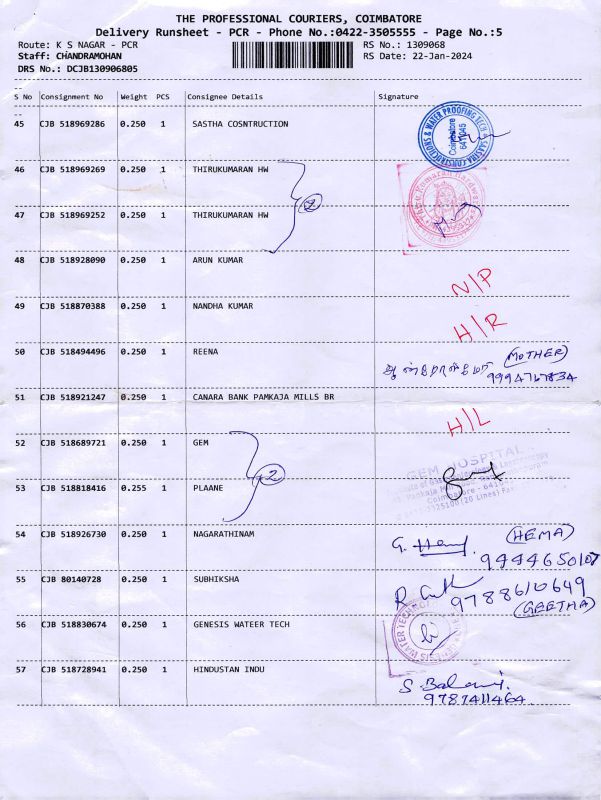 THE PROFESSIONAL COURIERS, COIMBATORE
Delivery Runsheet - PCR - Phone No.:0422-3505555 - Page No.:5
Route: K S NAGAR - PCR RS No.: 1309068
Staff: CHANDRAMOHAN RS Date: 22-Jan-2024
DRS No.: DCJB130906805
S No Consignment No Weight PCS Consignee Details Signature
45 CJB 518969286 0.250 1 SASTHA COSNTRUCTION
CONSTRUCTIONS & WATER PROOFING TECH
Coimbatore
641045
46 CJB 518969269 0.250 1 THIRUKUMARAN HW
2
47 CJB 518969252 0.250 1 THIRUKUMARAN HW
48 CJB 518928090 0.250 1 ARUN KUMAR
N/P
49 CJB 518870388 0.250 1 NANDHA KUMAR
H/R
50 CJB 518494496 0.250 1 REENA
(MOTHER)
51 CJB 518921247 0.250 1 CANARA BANK PAMKAJA MILLS BR
H/L
52 CJB 518689721 0.250 1 GEM
GEM HOSPITAL
2
53 CJB 518818416 0.255 1 PLAANE
54 CJB 518926730 0.250 1 NAGARATHINAM
(HEMA)
9444650107
55 CJB 80140728 0.250 1 SUBHIKSHA
9788610649
(GEETHA)
56 CJB 518830674 0.250 1 GENESIS WATEER TECH
57 CJB 518728941 0.250 1 HINDUSTAN INDU
9787411464